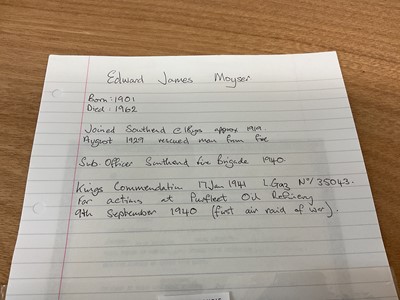 Edward James Moyser
Born: 1901
Died: 1962
Joined Southend approx 1919
August 1929 rescued man from fire
Sub. Officer Southend Fire Brigade 1940.
Kings Commendation 17 Jan 1941 L Gaz Nº/ 35043.
For actions at Purfleet Oil Refinery
9th September 1940 (first air raid of war).